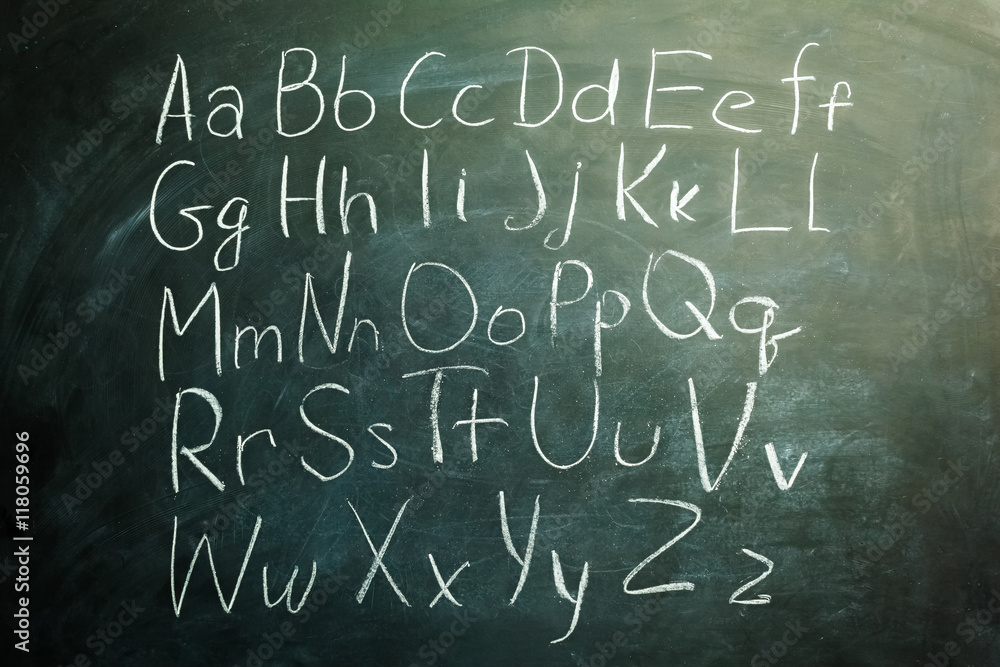 Aa Bb Cc Dd Ee Ff
Gg Hh Ii Jj Kk Ll
Mm Nn Oo Pp Qq
Rr Ss Tt Uu Vv
Ww Xx Yy Zz
Adobe Stock | #118059696